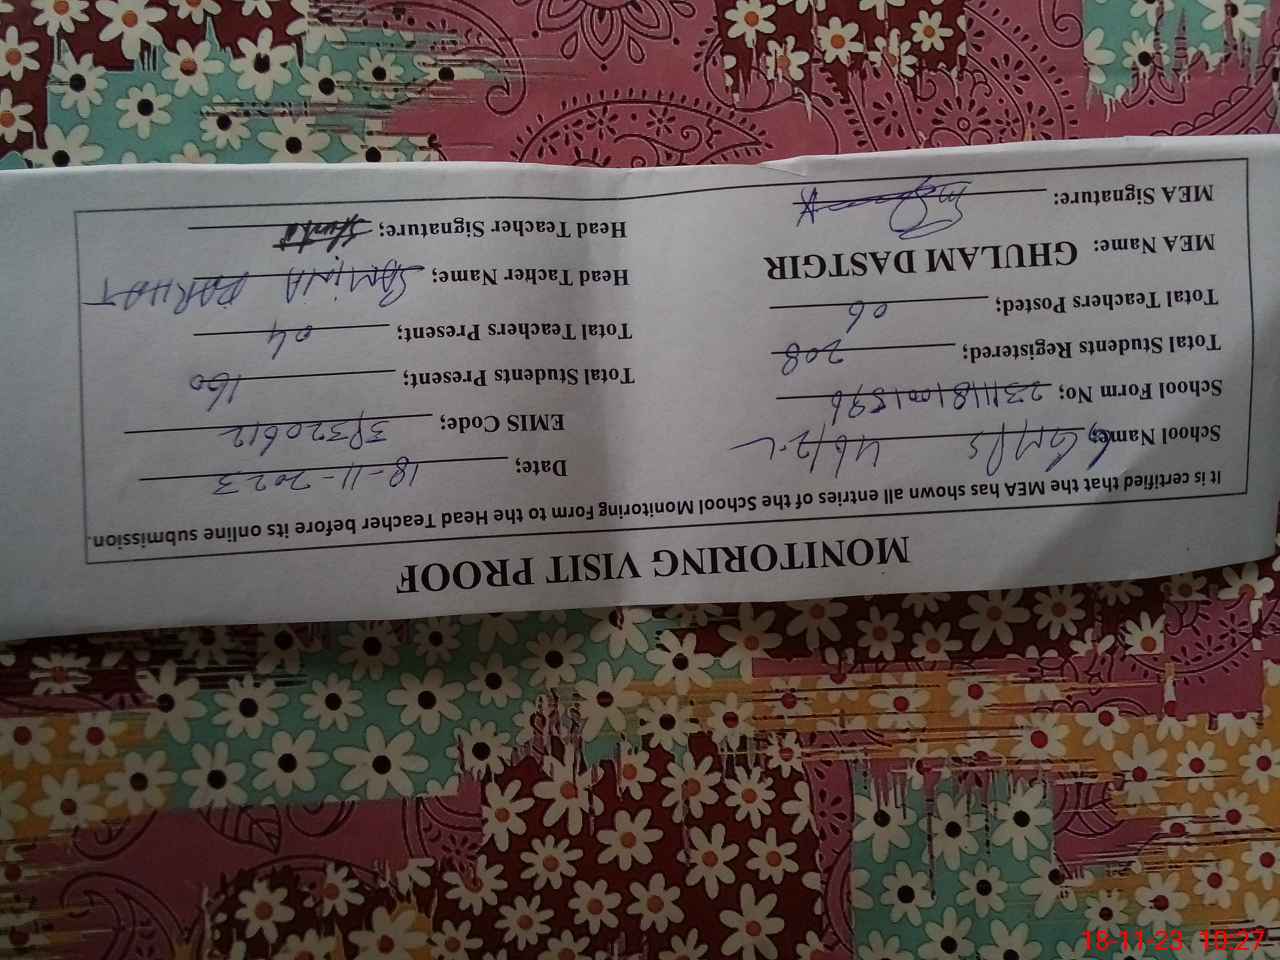 MONITORING VISIT PROOF
It is certified that the MEA has shown all entries of the School Monitoring Form to the Head Teacher before its online submission.
School Name; GMPS 46/2-L Date; 18-11-2023
School Form No; EMIS Code; 39320612
Total Students Registered; 208 Total Students Present; 160
Total Teachers Posted; 06 Total Teachers Present; 04
MEA Name: GHULAM DASTGIR Head Tacher Name; SAMINA FARHAT
MEA Signature: Head Teacher Signature;
18-11-23 10:27